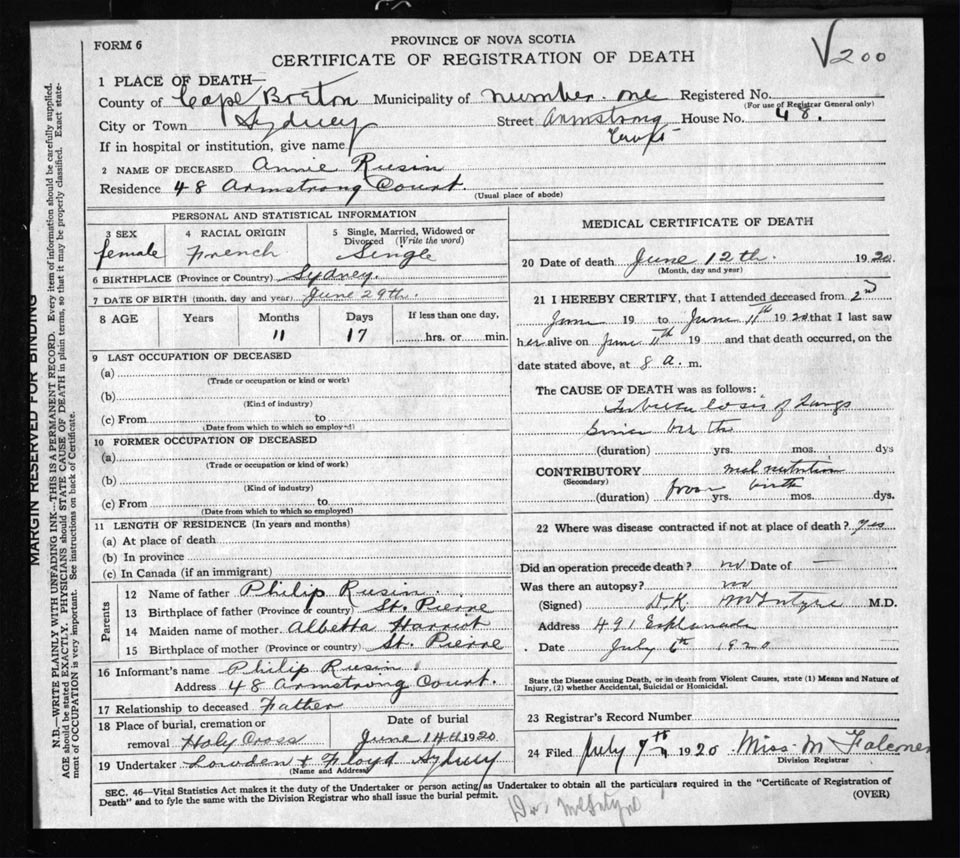 FORM 6
PROVINCE OF NOVA SCOTIA
CERTIFICATE OF REGISTRATION OF DEATH
√200
1 PLACE OF DEATH—
County of Cape Breton Municipality of number one Registered No.
(For use of Registrar General only)
City or Town Sydney Street Armstrong House No. 48.
If in hospital or institution, give name
2 NAME OF DECEASED Annie Rusin
Residence 48 Armstrong Court.
(Usual place of abode)
PERSONAL AND STATISTICAL INFORMATION
3 SEX 4 RACIAL ORIGIN 5 Single, Married, Widowed or Divorced (Write the word)
female French Single
6 BIRTHPLACE (Province or Country) Sydney.
7 DATE OF BIRTH (month, day and year) June 29th.
8 AGE Years Months Days If less than one day,
11 17 hrs. or min.
9 LAST OCCUPATION OF DECEASED
(a)
(Trade or occupation or kind or work)
(b)
(Kind of industry)
(c) From to
(Date from which to which so employed)
10 FORMER OCCUPATION OF DECEASED
(a)
(Trade or occupation or kind of work)
(b)
(Kind of industry)
(c) From to
(Date from which to which so employed)
11 LENGTH OF RESIDENCE (In years and months)
(a) At place of death
(b) In province
(c) In Canada (if an immigrant)
Parents
12 Name of father Philip Rusin.
13 Birthplace of father (Province or country) St. Pierre
14 Maiden name of mother Albetta Harriot
15 Birthplace of mother (Province or country) St. Pierre
16 Informant's name Philip Rusin
Address 48 Armstrong Court.
17 Relationship to deceased Father
18 Place of burial, cremation or removal Holy Cross
Date of burial June 14th 1920
19 Undertaker Lowden & Floyd Sydney
(Name and Address)
MEDICAL CERTIFICATE OF DEATH
20 Date of death June 12th. 1920
(Month, day and year)
21 I HEREBY CERTIFY, that I attended deceased from 2nd
June 19 to June 11th 1920 that I last saw
her alive on June 11th 19 and that death occurred, on the
date stated above, at 8 a. m.
The CAUSE OF DEATH was as follows:
Tuberculosis of Lungs
since birth
(duration) yrs. mos. dys
CONTRIBUTORY malnutrition
(Secondary)
from birth
(duration) yrs. mos. dys.
22 Where was disease contracted if not at place of death? yes
Did an operation precede death? no Date of —
Was there an autopsy? no
(Signed) D.K. McIntyre M.D.
Address 491 Esplanade
Date July 6th 1920
State the Disease causing Death, or in death from Violent Causes, state (1) Means and Nature of
Injury, (2) whether Accidental, Suicidal or Homicidal.
23 Registrar's Record Number
24 Filed July 7th 1920 Miss M Falconer
Division Registrar
SEC. 46—Vital Statistics Act makes it the duty of the Undertaker or person acting as Undertaker to obtain all the particulars required in the "Certificate of Registration of
Death" and to fyle the same with the Division Registrar who shall issue the burial permit.
(OVER)
Dr. McIntyre
MARGIN RESERVED FOR BINDING
N.B.—WRITE PLAINLY WITH UNFADING INK—THIS IS A PERMANENT RECORD. Every item of information should be carefully supplied.
AGE should be stated EXACTLY. PHYSICIANS should STATE CAUSE OF DEATH in plain terms, so that it may be properly classified. Exact state-
ment of OCCUPATION is very important. See instructions on back of Certificate.